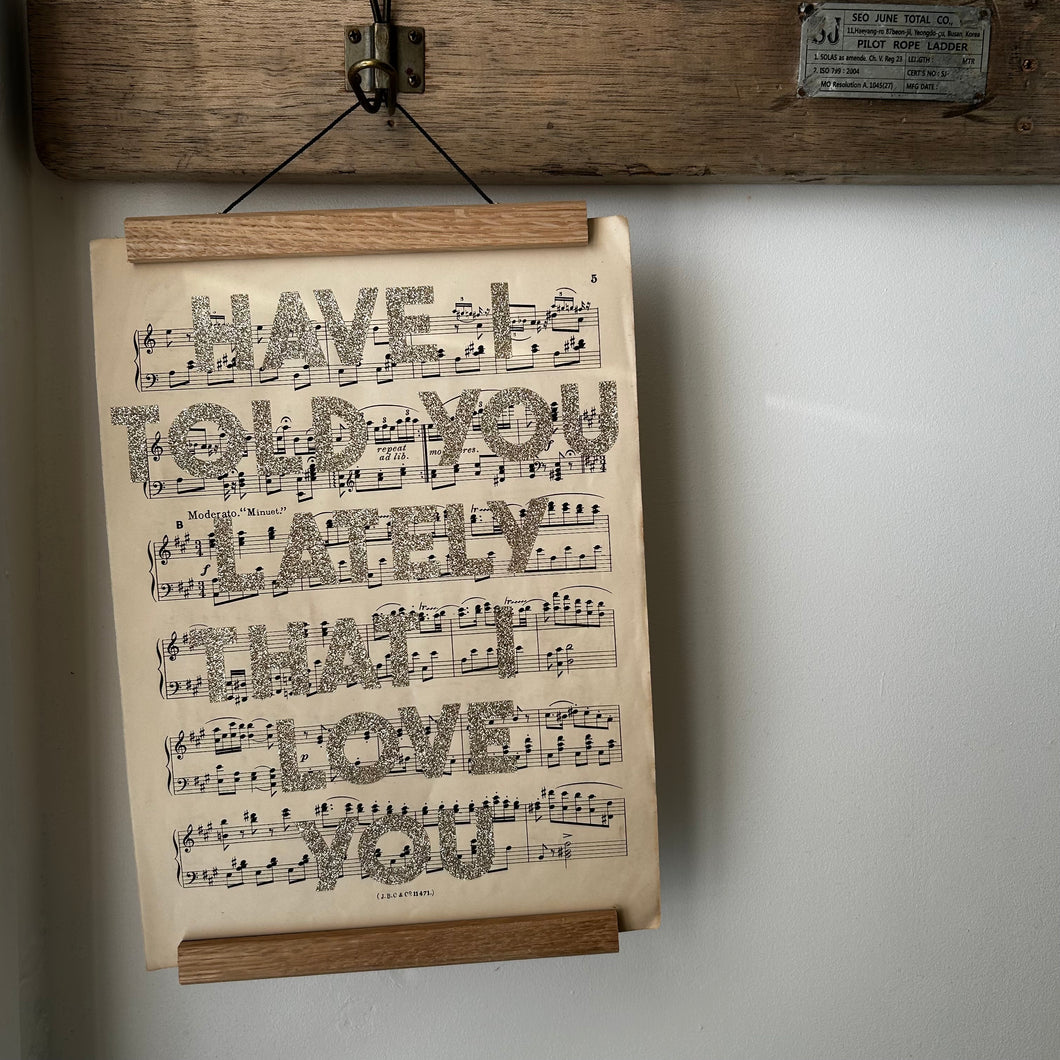 SJ
SEO JUNE TOTAL CO.,
11,Haeyang-ro 87beon-jil, Yeongdo-gu, Busan, Korea
PILOT ROPE LADDER
1. SOLAS as amende. Ch. V. Reg 23
LENGTH : MTR
7. ISO 799 : 2004
CERT'S NO : SJ-
MO Resolution A. 1045(27)
MFG DATE :
5
HAVE I
TOLD YOU
repeat
ad lib.
Moderato. "Minuet."
B
f
LATELY
THAT I
LOVE
p
YOU
(J.B.C & Co 11471.)